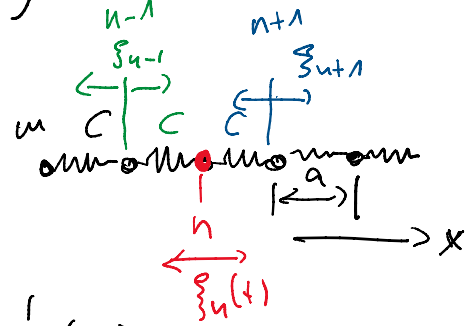 n-1
n+1
ξn-1
ξn+1
m C C C
a
n
x
ξn(t)